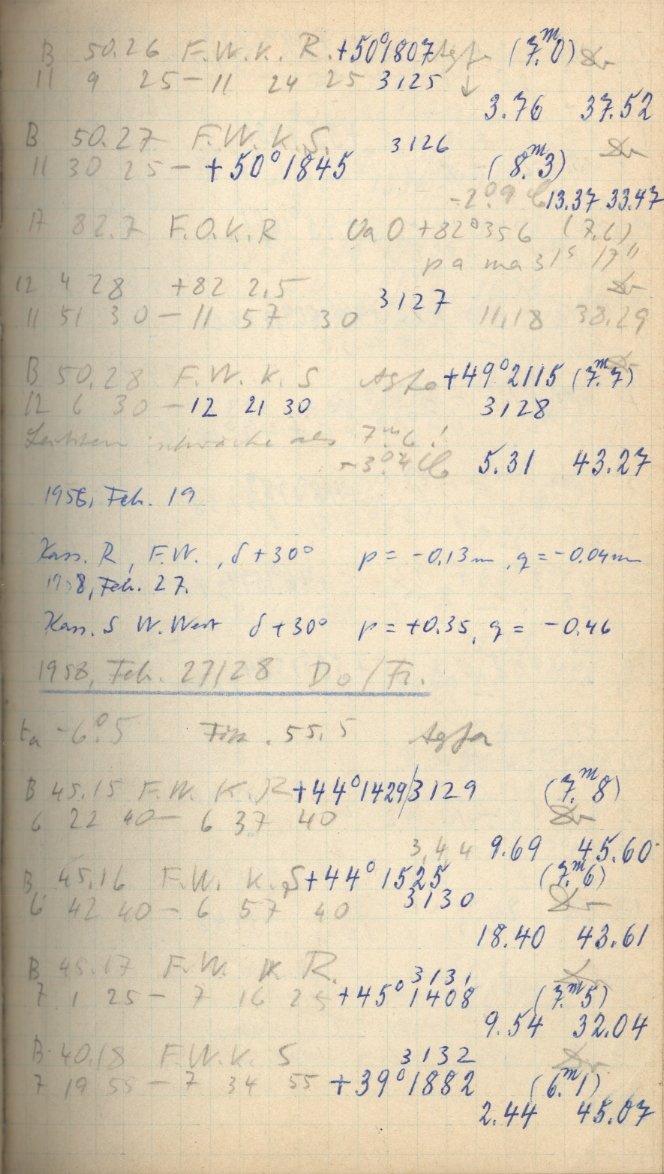 B 50.26 F.W.K. R. +50°1807 Agfa (7.ᵐ0)
11 9 25 – 11 24 25 3125
3.76 37.52
B 50.27 F.W.K.S. 3126
11 30 25 – +50°1845 (8.ᵐ3)
-2°9 13.37 33.47
82.7 F.O.K.R +82°356 (7.6)
12 4 28 +82 2,5
11 51 30 – 11 57 30 3127 11,18 38.29
B 50.28 F.W.K.S Agfa +49°2115 (7.ᵐ7)
12 6 30 – 12 21 30 3128
als 7ᵐ6!
5.31 43.27
1958, Feb. 19
Kass. R, F.W., δ +30° p = -0,13m, q = -0.04m
1958, Feb. 27.
Kass. S W. West δ +30° p = +0.35, q = -0.46
1958, Feb. 27/28 Do/Fr.
ta -6°5 55,5 Agfa
B 45.15 F.W. K. R +44°1429/3129 (7.ᵐ8)
6 22 40 – 6 37 40
3,44 9.69 45.60
B 45.16 F.W. K. S +44°1525 (7.ᵐ6)
6 42 40 – 6 57 40 3130
18.40 43.61
B 45.17 F.W. K R. 3131
7 1 25 – 7 16 25 +45°1408 (7.ᵐ5)
9.54 32.04
B 40.18 F.W.K. S 3132
7 19 55 – 7 34 55 +39°1882 (6.ᵐ1)
2.44 45.07